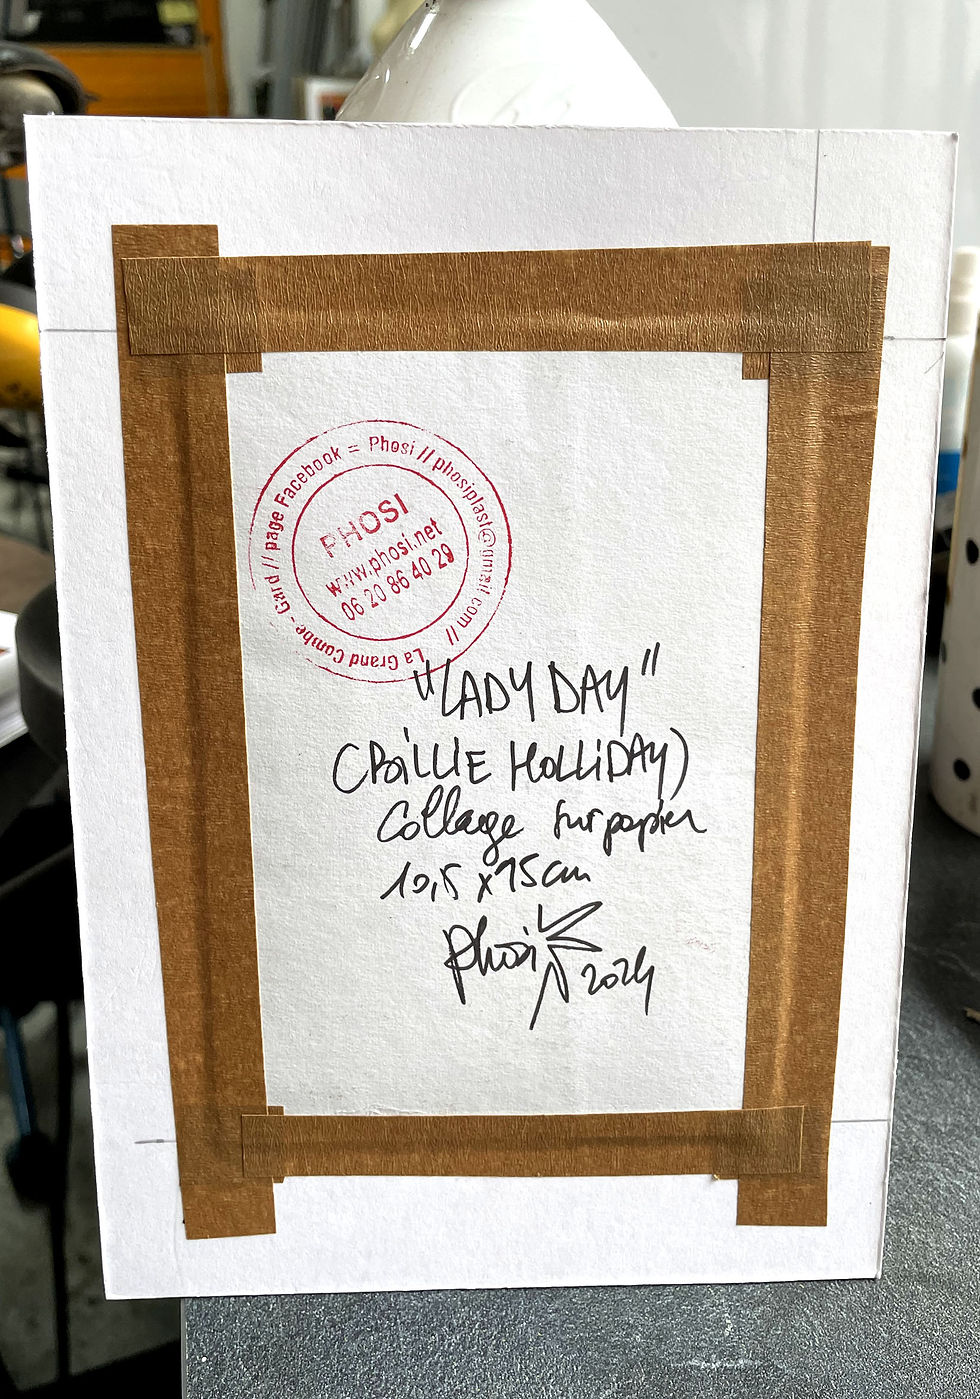 page Facebook = Phosi // phosiplast@gmail.com // La Grand Combe - Gard //
PHOSI
www.phosi.net
06 20 86 40 29
"LADY DAY"
(BiLLIE HOLLiDAY)
Collage sur papier
10,5 x 15 cm
phosi 2024